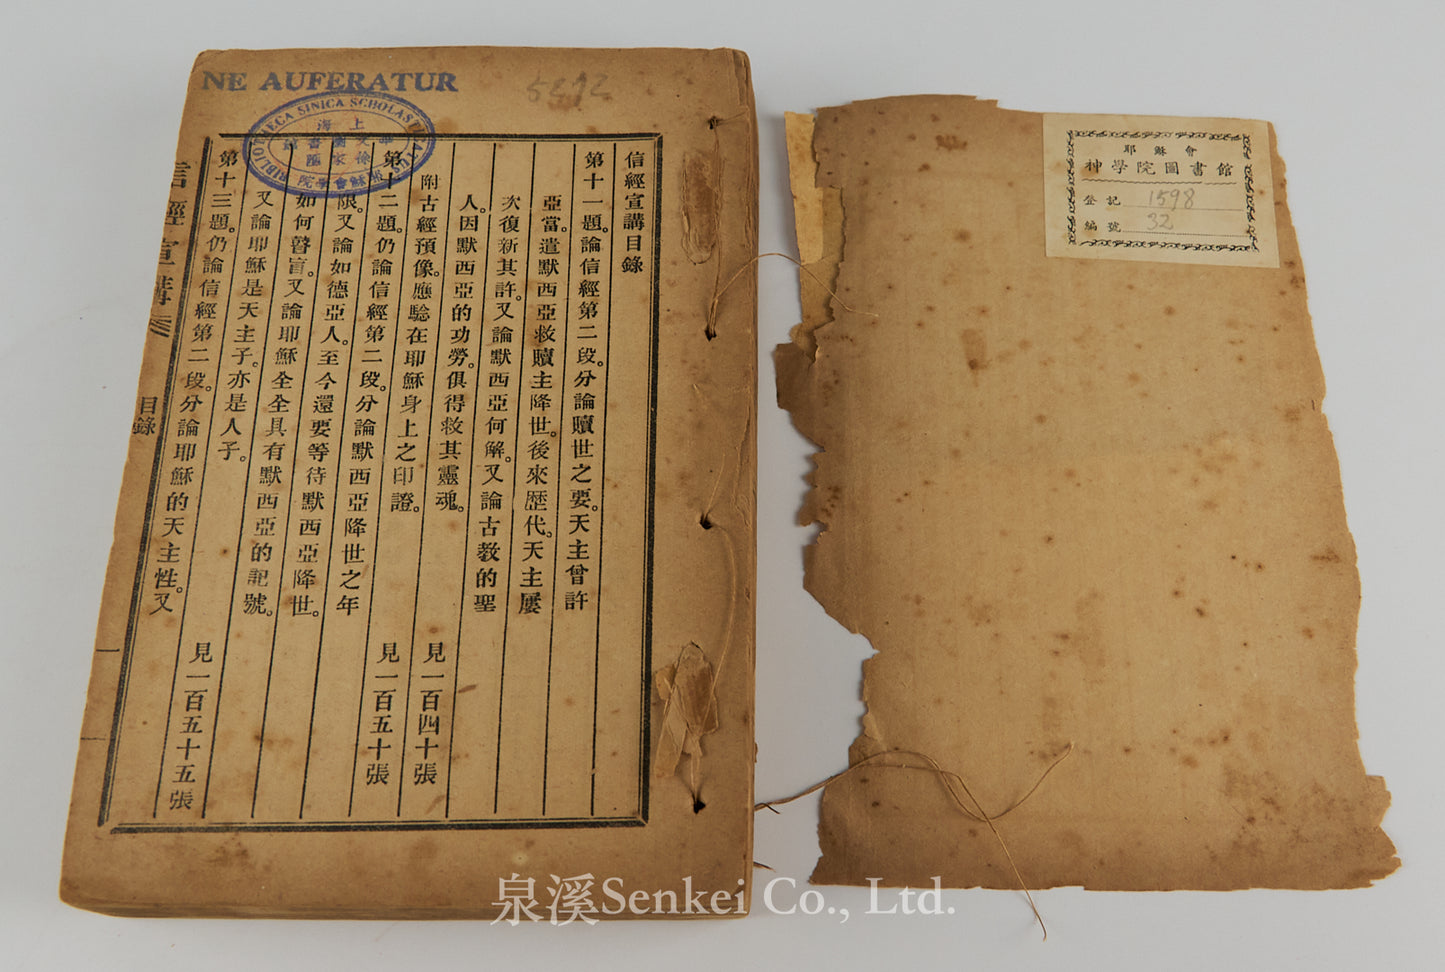 NE AUFERATUR
5272
BIBLIOTHECA SINICA SCHOLASTICATUS
上海
書
徐家匯
耶穌會學院
信經宣講目錄
第十一題。論信經第二段。分論贖世之要。天主曾許
亞當。遣默西亞救贖主降世。後來歷代。天主屢
次復新其許。又論默西亞何解。又論古教的聖
人。因默西亞的功勞。俱得救其靈魂。
附古經預像。應驗在耶穌身上之印證。 見一百四十張
第十二題。仍論信經第二段。分論默西亞降世之年 見一百五十張
限。又論如德亞人。至今還要等待默西亞降世。
如何瞽盲。又論耶穌全全具有默西亞的記號。
又論耶穌是天主子。亦是人子。
第十三題。仍論信經第二段。分論耶穌的天主性。又 見一百五十五張
信經宣講
目錄
耶穌會
神學院圖書館
登記 1598
編號 32
泉溪Senkei Co., Ltd.